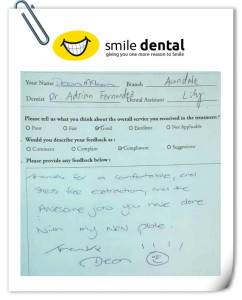 smile dental
giving you one more reason to Smile
Your Name: Deon Branch: Avondale
Dentist Dr. Adrian Fernandez Dental Assistant: Lily
Please tell us what you think about the overall service you received in the treatment :
Poor Fair Good Excellent Not Applicable
Would you describe your feedback as :
Comment Complain Compliment Suggestions
Please provide any feedback below :
thanks for a comfortable, and
stress free extraction, and the
Awesome job you have done
with my new plate.
thanks
Deon